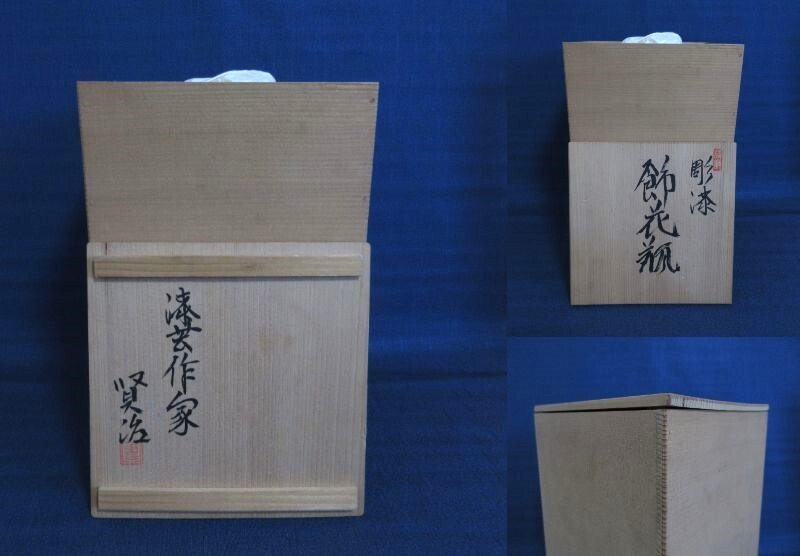 漆芸作家
賢治
彫漆
飾花瓶